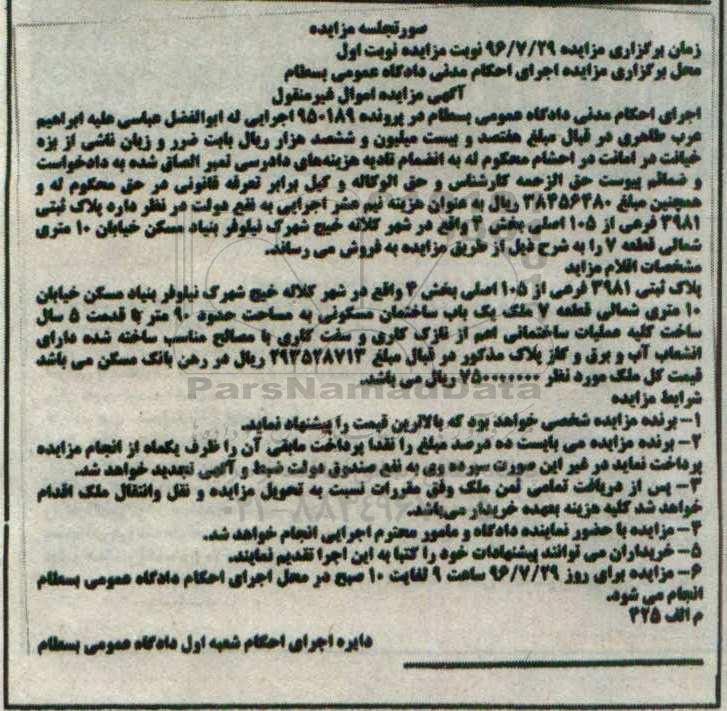 صورتجلسه مزایده
زمان برگزاری مزایده ۹۶/۷/۲۹ نوبت مزایده نوبت اول
محل برگزاری مزایده اجرای احکام مدنی دادگاه عمومی بسطام
آگهی مزایده اموال غیرمنقول
اجرای احکام مدنی دادگاه عمومی بسطام در پرونده ۹۵۰۱۸۹ اجرایی له ابوالفضل عباسی علیه ابراهیم
عرب طاهری در قبال مبلغ هفتصد و بیست میلیون و ششصد هزار ریال بابت ضرر و زیان ناشی از بزه
خیانت در امانت در احشام محکوم له به انضمام تادیه هزینه‌های دادرسی تمبر الصاق شده به دادخواست
و ضمائم پیوست حق الزحمه کارشناس و حق الوکاله و کیل برابر تعرفه قانونی در حق محکوم له و
همچنین مبلغ ۳۸۴۵۶۲۸۰ ریال به عنوان هزینه نیم عشر اجرایی به نفع دولت در نظر داره پلاک ثبتی
۳۹۸۱ فرعی از ۱۰۵ اصلی بخش ۴ واقع در شهر کلاته خیج شهرک نیلوفر بنیاد مسکن خیابان ۱۰ متری
شمالی قطعه ۷ را به شرح ذیل از طریق مزایده به فروش می رساند.
مشخصات اقلام مزاید
پلاک ثبتی ۳۹۸۱ فرعی از ۱۰۵ اصلی بخش ۴ واقع در شهر کلاته خیج شهرک نیلوفر بنیاد مسکن خیابان
۱۰ متری شمالی قطعه ۷ ملک یک باب ساختمان مسکونی به مساحت حدود ۹۰ متر با قدمت ۵ سال
ساخت کلیه عملیات ساختمانی اعم از نازک کاری و سفت کاری با مصالح مناسب ساخته شده دارای
انشعاب آب و برق و گاز پلاک مذکور در قبال مبلغ ۲۹۲۵۲۸۷۱۳ ریال در رهن بانک مسکن می باشد
قیمت کل ملک مورد نظر ۷۵۰۰۰۰۰۰۰ ریال می باشد.
ParsNamadData
شرایط مزایده
۱- برنده مزایده شخصی خواهد بود که بالاترین قیمت را پیشنهاد نماید.
۲- برنده مزایده می بایست ده درصد مبلغ را نقدا پرداخت مابقی آن را ظرف یکماه از انجام مزایده
پرداخت نماید در غیر این صورت سپرده وی به نفع صندوق دولت ضبط و آگهی تجدید خواهد شد.
۳- پس از دریافت تمامی ثمن ملک وفق مقررات نسبت به تحویل مزایده و نقل وانتقال ملک اقدام
خواهد شد کلیه هزینه بعهده خریدار می‌باشد.
۴- مزایده با حضور نماینده دادگاه و مامور محترم اجرایی انجام خواهد شد.
۵- خریداران می توانند پیشنهادات خود را کتبا به این اجرا تقدیم نمایند.
۶- مزایده برای روز ۹۶/۷/۲۹ ساعت ۹ لغایت ۱۰ صبح در محل اجرای احکام دادگاه عمومی بسطام
انجام می شود.
م الف ۴۲۵
دایره اجرای احکام شعبه اول دادگاه عمومی بسطام